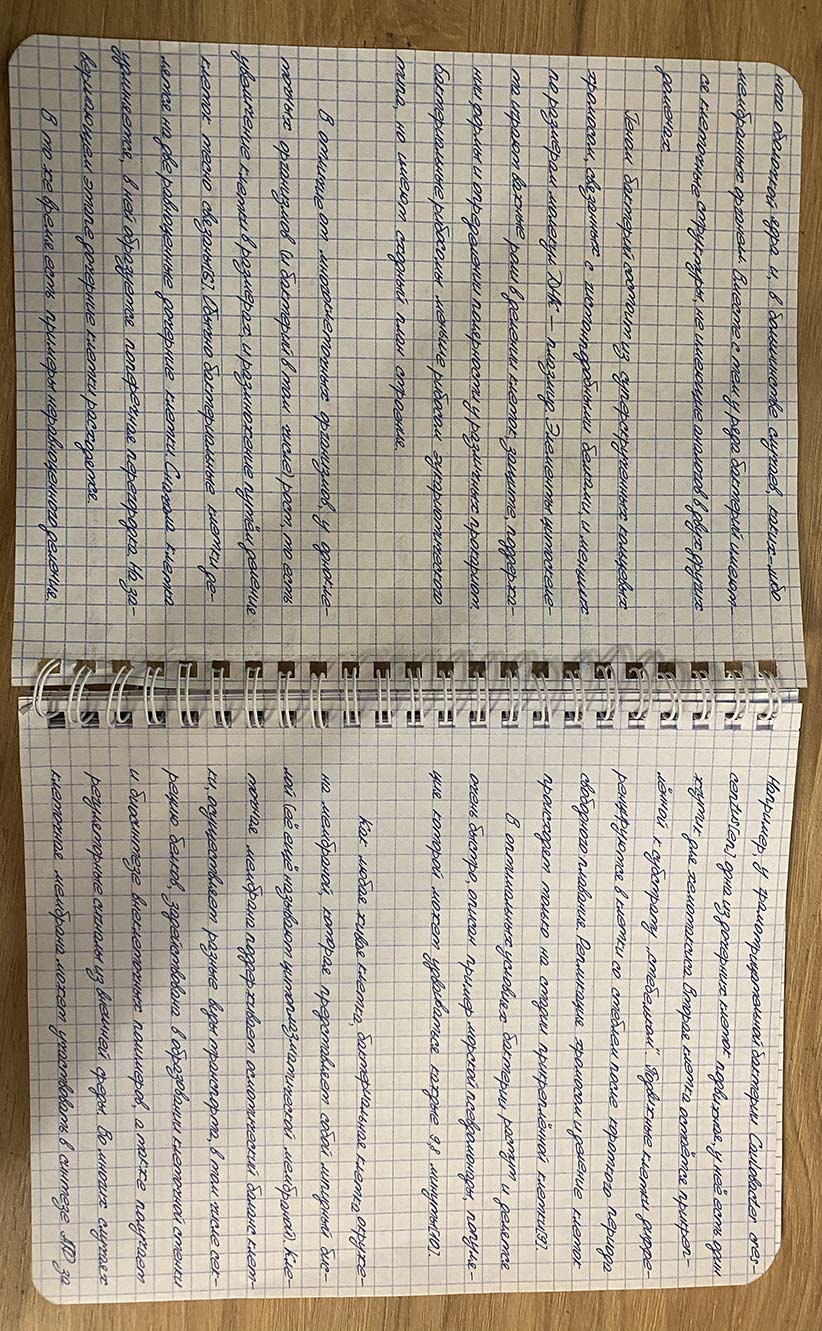 ного оболочкой ядра и, в большинстве случаев, каких-либо
мембранных органелл. Вместе с тем у ряда бактерий имеют-
ся клеточные структуры, не имеющие аналогов в двух других
доменах.
Геном бактерий состоит из суперскрученных кольцевых
хромосом, связанных с гистоноподобными белками и меньших
по размерам молекул ДНК — плазмид. Элементы цитоскеле-
та играют важные роли в делении клеток, защите, поддержа-
нии формы и определении полярности у различных прокариот.
Бактериальные рибосомы меньше рибосом эукариотического
типа, но имеют сходный план строения.
В отличие от многоклеточных организмов, у однокле-
точных организмов (и бактерий в том числе) рост, то есть
увеличение клетки в размерах, и размножение путём деления
клеток тесно связаны[8]. Обычно бактериальные клетки де-
лятся на две равноценные дочерние клетки. Сначала клетка
удлиняется, в ней образуется поперечная перегородка. На за-
вершающем этапе дочерние клетки расходятся.
В то же время есть примеры неравноценного деления.
Например, у грамотрицательной бактерии Caulobacter cres-
centus[en] одна из дочерних клеток подвижная, у неё есть один
жгутик для хемотаксиса. Вторая клетка остаётся прикреп-
лённой к субстрату „стебельком“. Подвижные клетки диффе-
ренцируются в клетки со стеблем после короткого периода
свободного плавания. Репликация хромосом и деление клеток
происходит только на стадии прикреплённой клетки[9].
В оптимальных условиях бактерии растут и делятся
очень быстро, описан пример морской псевдомонады, популя-
ция которой может удваиваться каждые 9.8 минуты[10].
Как любая живая клетка, бактериальная клетка окруже-
на мембраной, которая представляет собой липидный бис-
лой (её ещё называют цитоплазматической мембраной). Кле-
точная мембрана поддерживает осмотический баланс клет-
ки, осуществляет разные виды транспорта, в том числе сек-
рецию белков, задействована в образовании клеточной стенки
и биосинтезе внеклеточных полимеров, а также получает
регуляторные сигналы из внешней среды. Во многих случаях
клеточная мембрана может участвовать в синтезе АТФ за